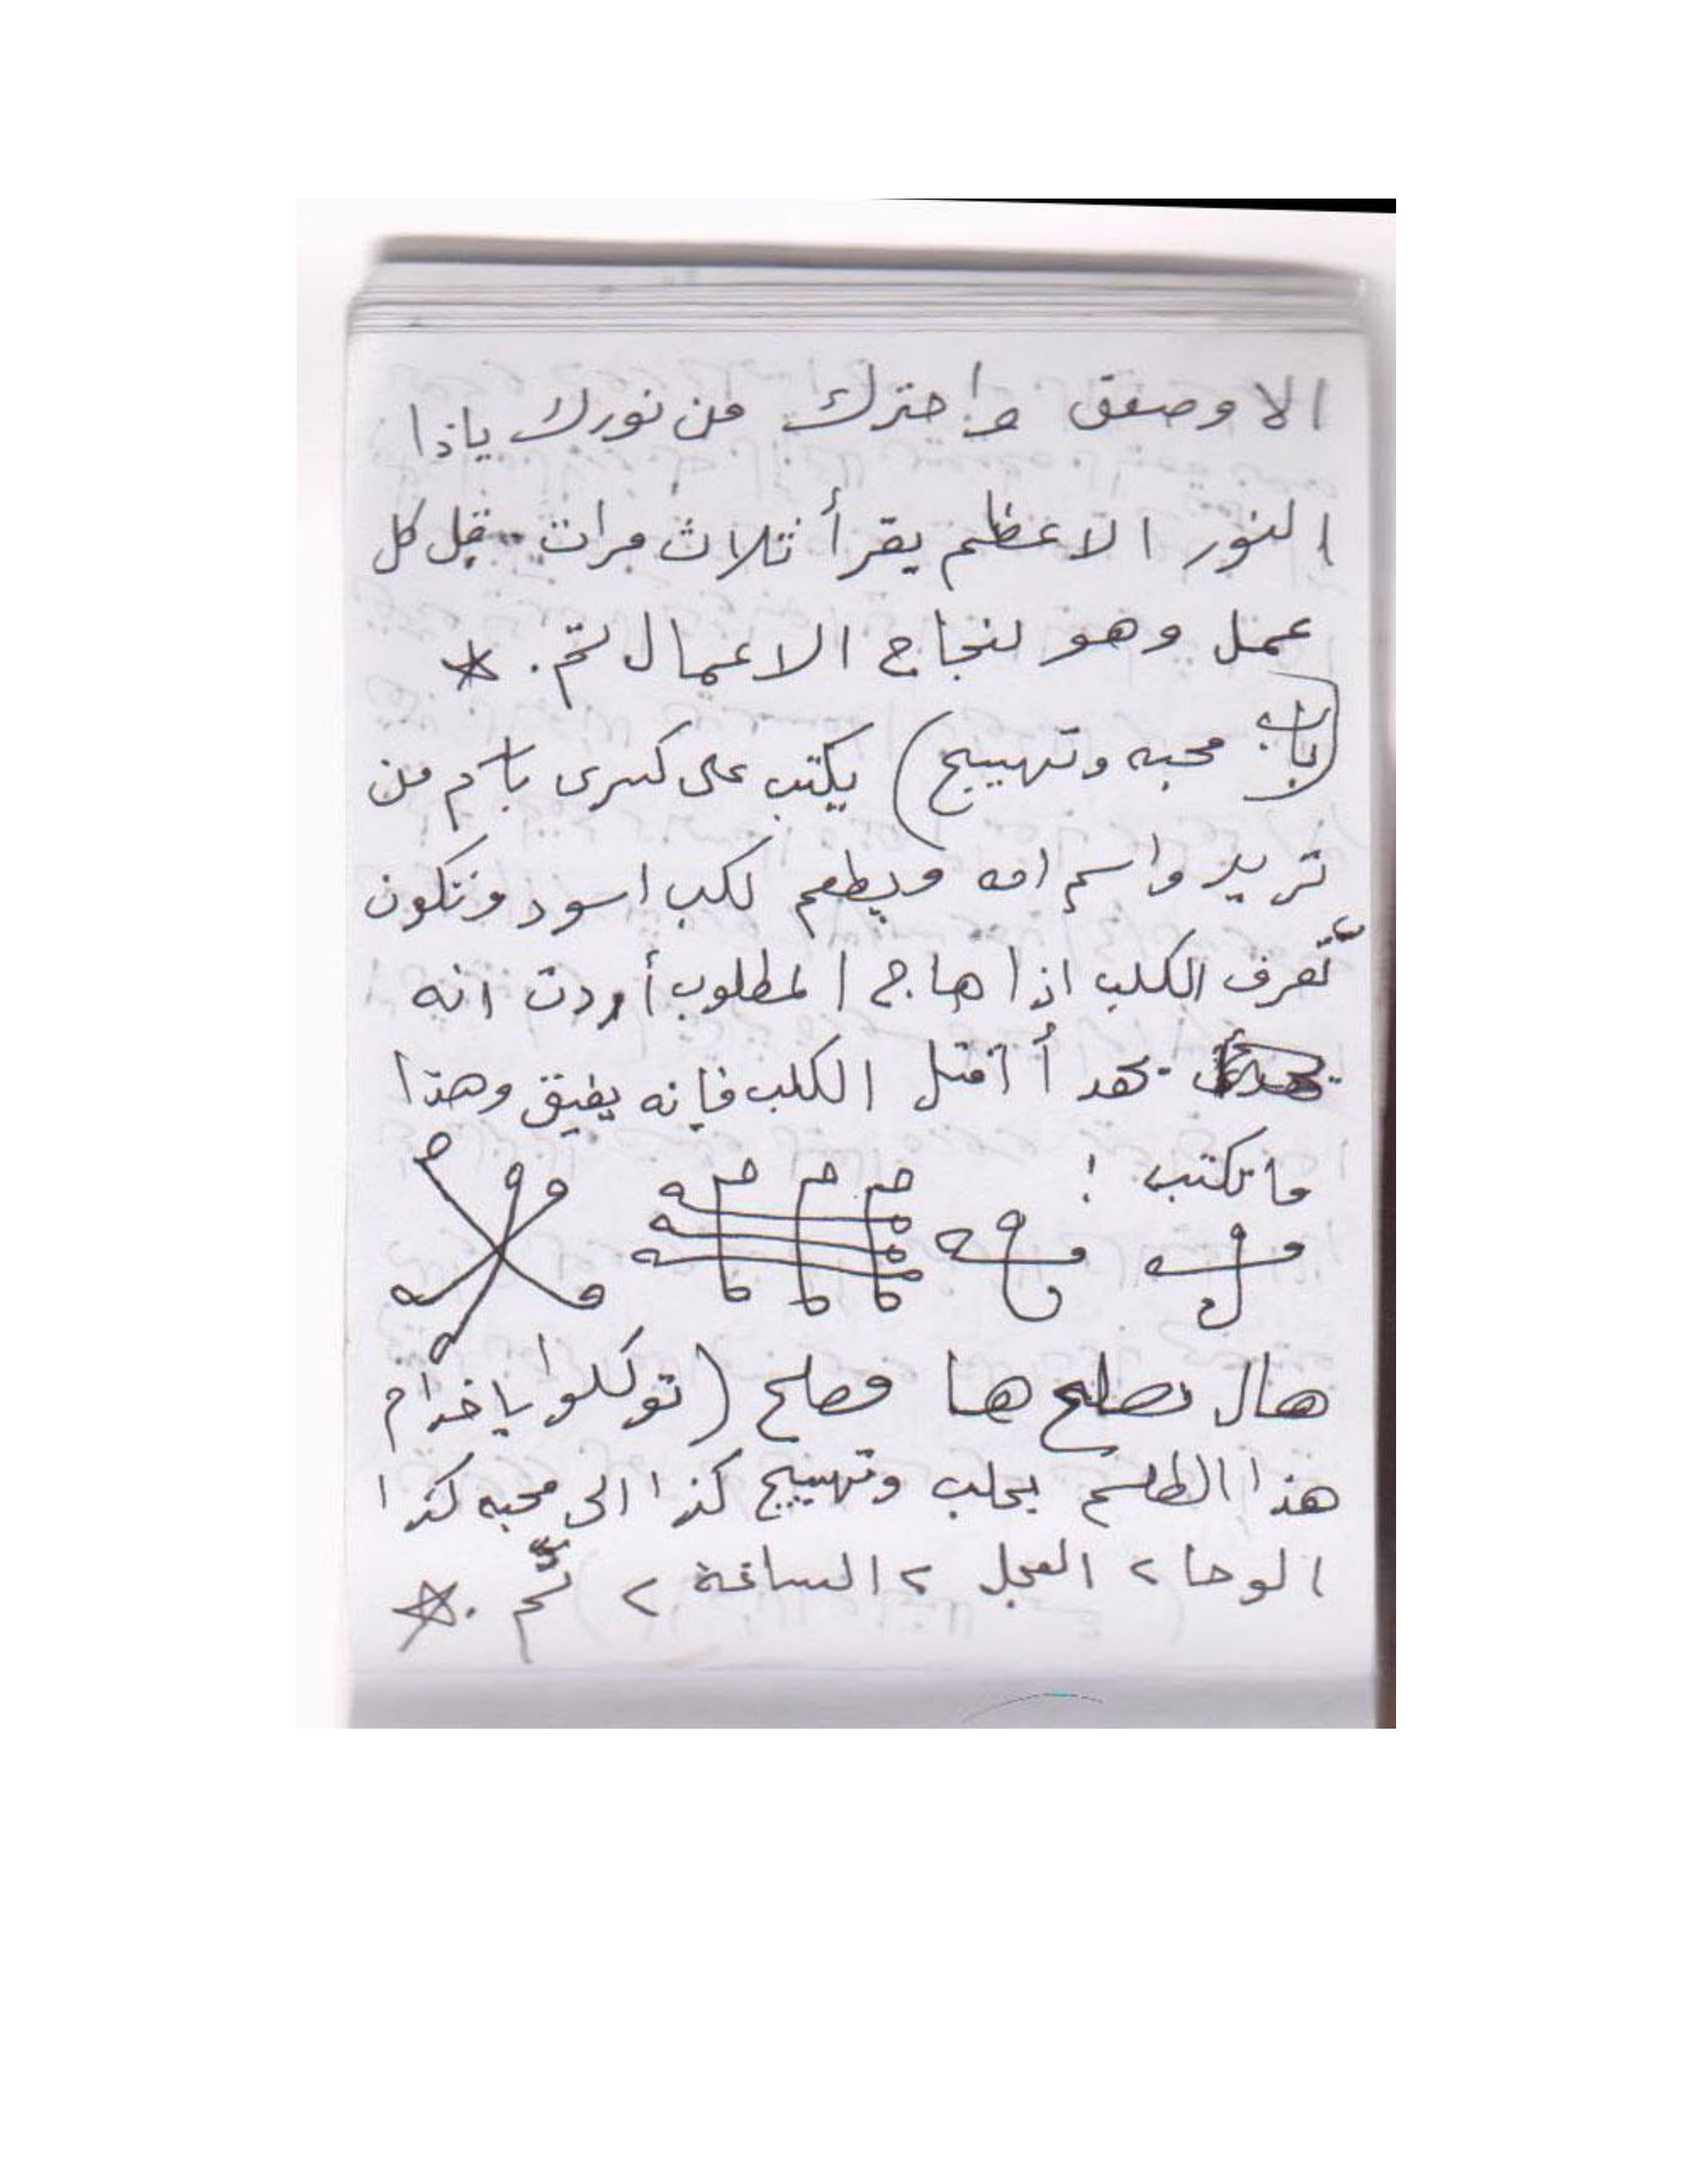 الا وصعق واحترك من نورك ياذا
النور الاعظم يقرأ ثلاث مرات قبل كل
عمل وهو لنجاح الاعمال تم .
(باب محبه وتهييج) يكتب على كسرى باسم من
تريد واسم امه ويطعم لكلب اسود وتكون
تعرف الكلب اذا هاج المطلوب أردت انه
يهدأ اقتل الكلب فإنه يفيق وهذا
ماتكتب :
هال هها (توكلوا ياخدام
هذا الطلسم بجلب وتهييج كذا الى محبه كذا
الوحا ٢ العجل ٢ الساعة ٢ تم .